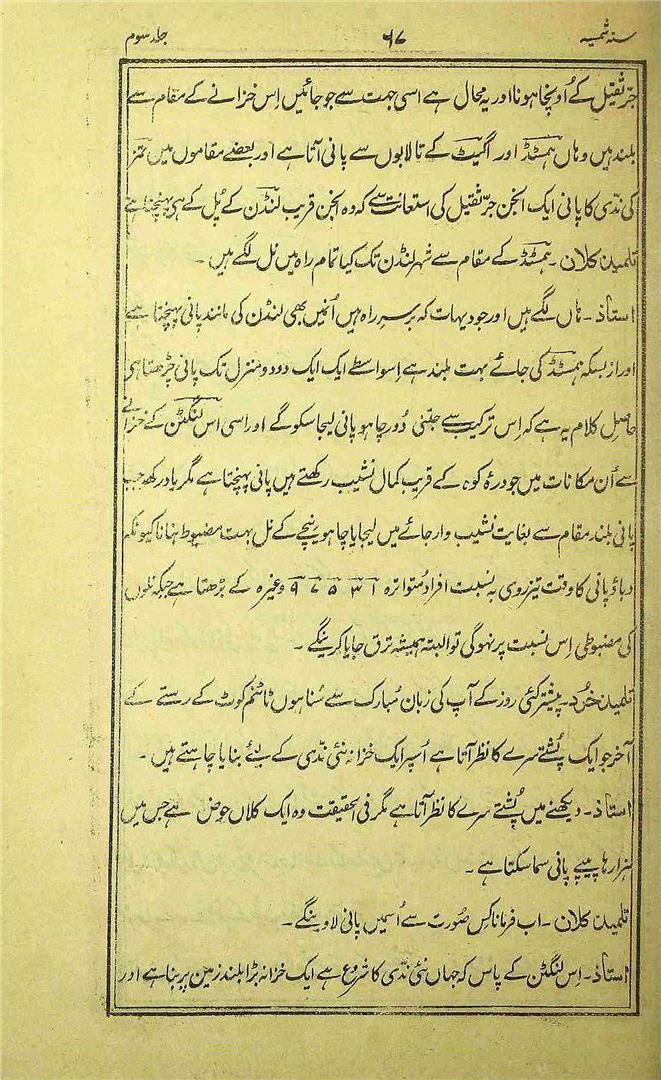 ستہ شمسیہ ۶۷ جلد سوم
جرّ ثقیل کے اُونچا ہونا اور یہ محال ہے اسی جہت سے جو جائیں اِس خزانے کے مقام سے
بلند ہیں وہاں ہمسٹڈ اور اگیٹ کے تالابوں سے پانی آتا ہے اور بعضے مقاموں میں تمز
کی ندّی کا پانی ایک انجن جرّ ثقیل کی استعانت سے کہ وہ انجن قریب لنڈن کے پُل کے ہی پہنچتا ہے
تلمیذ کلان ۔ ہمسٹڈ کے مقام سے شہر لنڈن تک کیا تمام راہ میں نل لگے ہیں ۔
استاذ ۔ ہاں لگے ہیں اور جو دیہات کہ برسرِ راہ ہیں اُنمیں بھی لنڈن کی مانند پانی پہنچتا ہے
اور از بسکہ ہمسٹڈ کی جائے بہت بلند ہے اِسواسطے ایک ایک دو دو منزل تک پانی چڑھتا ہی
حاصل کلام یہ ہے کہ اِس ترکیب سے جتنی دُور چاہو پانی لیجا سکو گے اور اسی اس لنگٹن کے خزانے
سے اُن مکانات میں جو درۂ کوہ کے قریب کمال نشیب رکھتے ہیں پانی پہنچتا ہے مگر یاد رکھو جب
پانی بلند مقام سے بغایت نشیب وار جائے میں لیجایا چاہو نیچے کے نل بہت مضبوط بنانا کیونکہ
دباؤ پانی کا وقت تیزروی بہ نسبت افراد متواترہ ۱ ۳ ۵ ۷ ۹ وغیرہ کے بڑھتا ہے جبکہ نلوں
کی مضبوطی اِس نسبت پر نہوگی تو البتہ ہمیشہ ترق جایا کرینگے ۔
تلمیذ خُرد ۔ پیشتر کئی روز کے آپ کی زبان مُبارک سے سُنا ہوں ٹاٹنم کوٹ کے رستے کے
آخر جو ایک پُشتے سرے کا نظر آتا ہے اُسپر ایک خزانہ نئی ندّی کے لیئے بنایا چاہتے ہیں ۔
استاذ ۔ دیکھنے میں پُشتے سرے کا نظر آتا ہے مگر فی الحقیقت وہ ایک کلاں حوض ہے جس میں
ہزارہا پیپے پانی سما سکتا ہے ۔
تلمیذ کلان ۔ اب فرمانا کس صُورت سے اُسمیں پانی لاوینگے ۔
استاذ ۔ اِس لنگٹن کے پاس کہ جہاں نئی ندّی کا شروع ہے ایک خزانہ بڑا بلند زمین پر بنا ہے اور